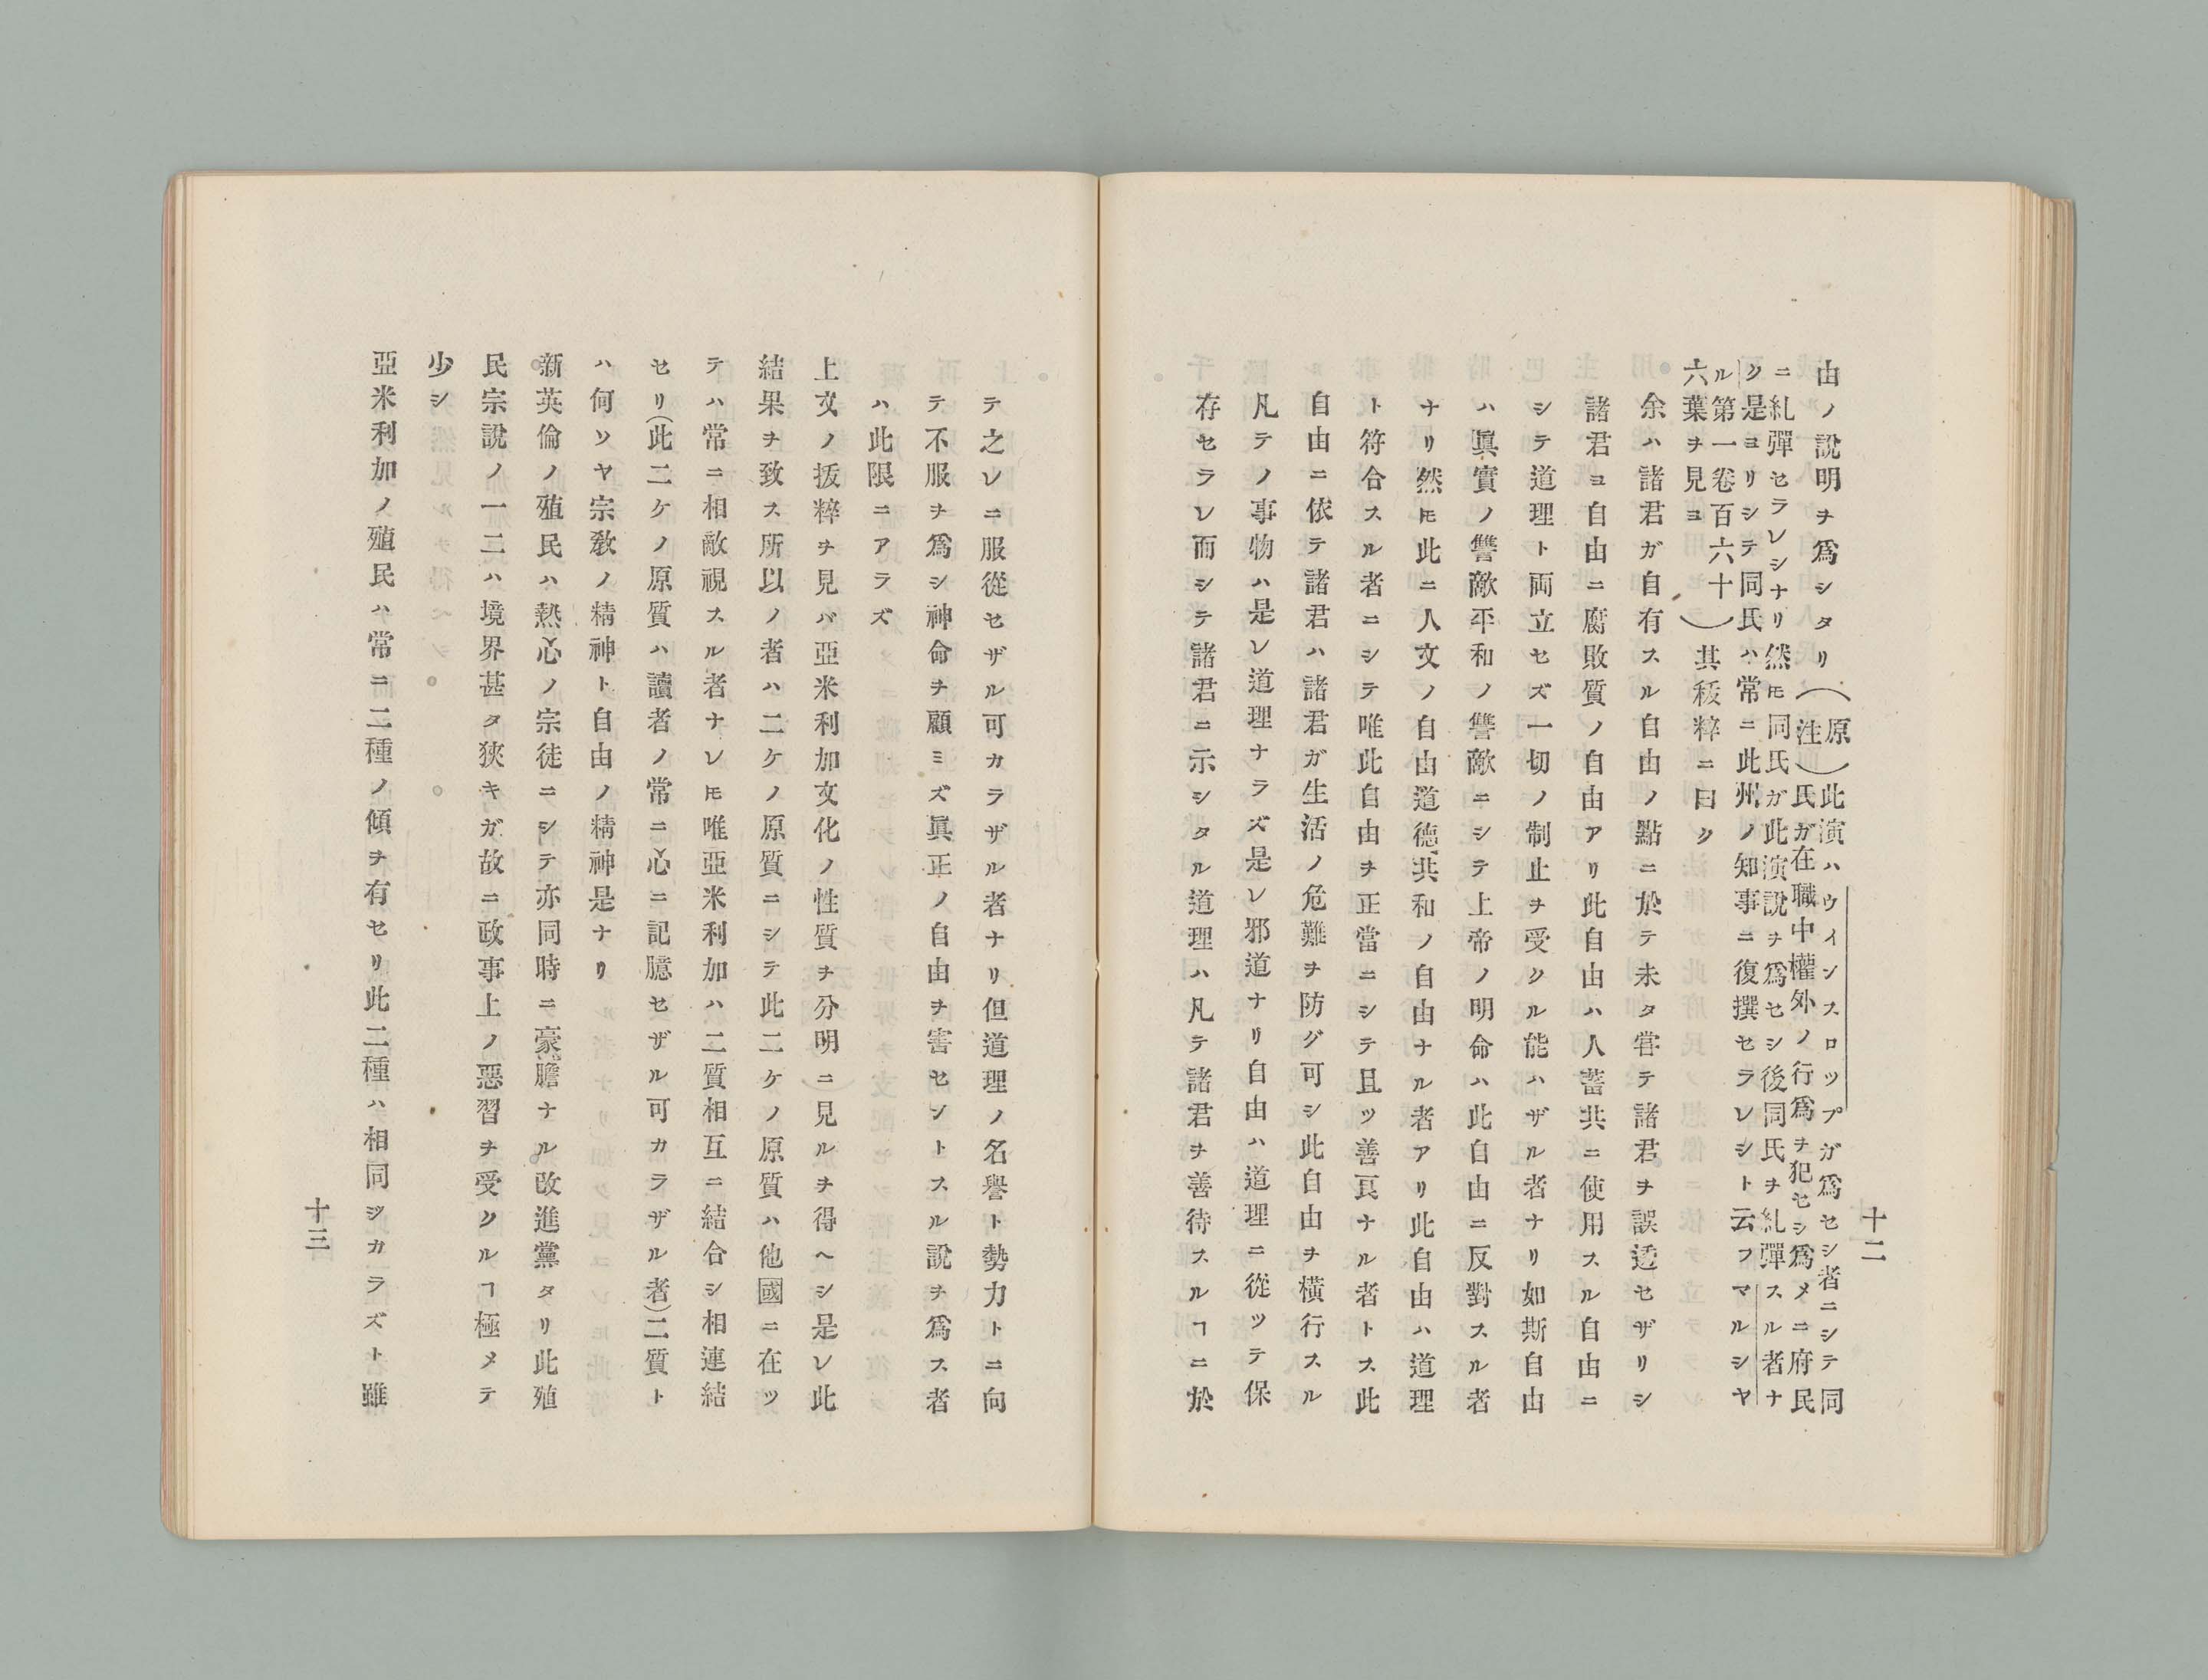 十二
由ノ說明ヲ爲シタリ(原注)此演ハウインスロツプガ爲セシ者ニシテ同
氏ガ在職中權外ノ行爲ヲ犯セシ爲メニ府民
ニ糺彈セラレシナリ然㆑モ同氏ガ此演說ヲ爲セシ後同氏ヲ糺彈スル者ナ
ク是ヨリシテ同氏ハ常ニ此州ノ知事ニ復撰セラレシト云フマルシヤ
ル第一卷百六十
六葉ヲ見ヨ)其秡粹ニ曰ク
余ハ諸君ガ自有スル自由ノ點ニ於テ未タ甞テ諸君ヲ誤ラセザリシ
諸君ヨ自由ニ腐敗質ノ自由アリ此自由ハ人畜共ニ使用スル自由ニ
シテ道理ト両立セズ一切ノ制止ヲ受クル能ハザル者ナリ如斯自由
ハ眞實ノ讐敵平和ノ讐敵ニシテ上帝ノ明命ハ此自由ニ反對スル者
ナリ然𪜈此ニ人文ノ自由道德、共和ノ自由ナル者アリ此自由ハ道理
ト符合スル者ニシテ唯此自由ヲ正當ニシテ且ツ善良ナル者トス此
自由ニ依テ諸君ハ諸君ガ生活ノ危難ヲ防グ可シ此自由ヲ橫行スル
凡テノ事物ハ是レ道理ナラズ是レ邪道ナリ自由ハ道理ニ從ツテ保
存セラレ而シテ諸君ニ示シタル道理ハ凡テ諸君ヲ善待スルヿニ於
テ之レニ服從セザル可カラザル者ナリ但道理ノ名譽ト勢力トニ向
テ不服ヲ爲シ神命ヲ顧ミズ眞正ノ自由ヲ害センドスル說ヲ爲ス者
ハ此限ニアラズ
上文ノ拔粹ヲ見バ亞米利加文化ノ性質ヲ分明ニ見ルヲ得ヘシ是レ此
結果ヲ致ス所以ノ者ハ二ケノ原質ニシテ此二ケノ原質ハ他國ニ在ツ
テハ常ニ相敵視スル者ナレ𪜈唯亞米利加ハ二質相互ニ結合シ相連結
セリ(此二ケノ原質ハ讀者ノ常ニ心ニ記臆セザル可カラザル者)二質ト
ハ何ソヤ宗敎ノ精神ト自由ノ精神是ナリ
新英倫ノ殖民ハ熱心ノ宗徒ニシテ亦同時ニ豪膽ナル改進黨タリ此殖
民宗說ノ一二ハ境界甚タ狹キガ故ニ政事上ノ惡習ヲ受クルヿ極メテ
少シ
亞米利加ノ殖民ハ常ニ二種ノ傾ヲ有セリ此二種ハ相同ジカラズト雖
十三